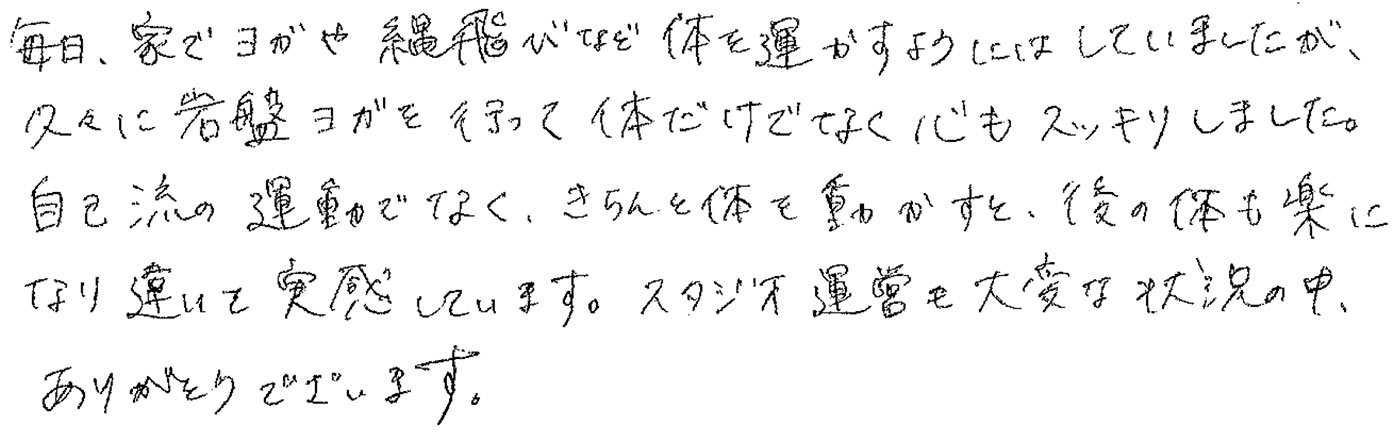 毎日、家でヨガや縄飛びなど体を運かすようにはしていましたが、
久々に岩盤ヨガを行って体だけでなく心もスッキリしました。
自己流の運動でなく、きちんと体を動かすと、後の体も楽に
なり違いを実感しています。スタジオ運営も大変な状況の中、
ありがとうございます。